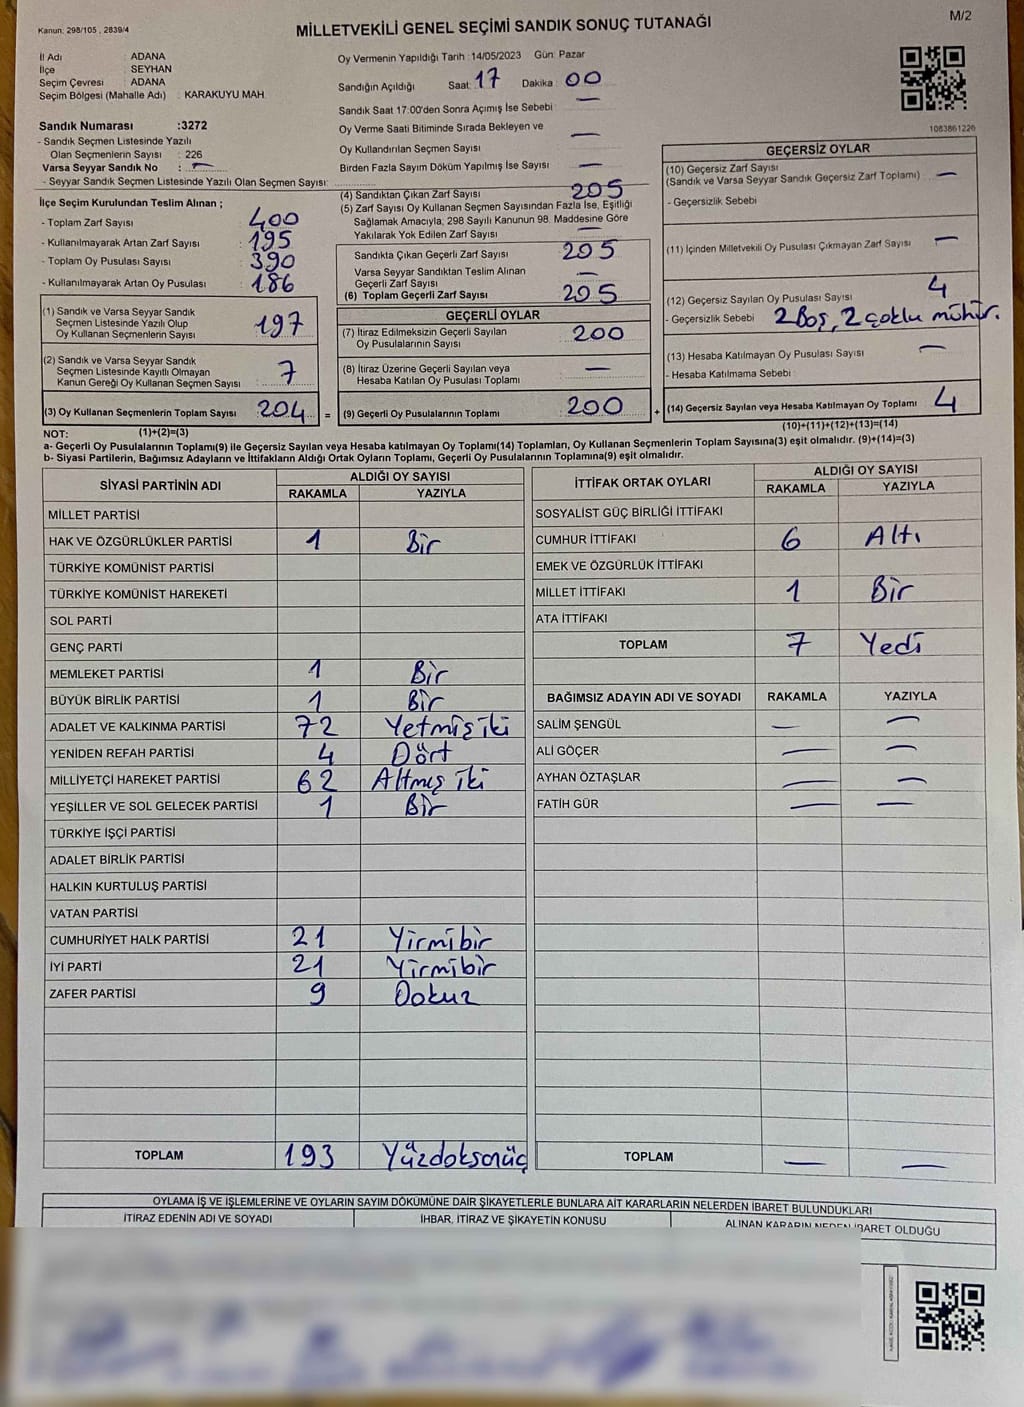 M/2
Kanun: 298/105 , 2839/4
MİLLETVEKİLİ GENEL SEÇİMİ SANDIK SONUÇ TUTANAĞI
İl Adı : ADANA
İlçe : SEYHAN
Seçim Çevresi : ADANA
Seçim Bölgesi (Mahalle Adı) : KARAKUYU MAH.
Sandık Numarası :3272
- Sandık Seçmen Listesinde Yazılı
Olan Seçmenlerin Sayısı : 226
Varsa Seyyar Sandık No : —
- Seyyar Sandık Seçmen Listesinde Yazılı Olan Seçmen Sayısı:
Oy Vermenin Yapıldığı Tarih :14/05/2023 Gün: Pazar
Sandığın Açıldığı Saat: 17 Dakika: 00
Sandık Saat 17:00'den Sonra Açımış İse Sebebi : —
Oy Verme Saati Bitiminde Sırada Bekleyen ve
Oy Kullandırılan Seçmen Sayısı : —
Birden Fazla Sayım Döküm Yapılmış İse Sayısı : —
1083861226
İlçe Seçim Kurulundan Teslim Alınan ;
- Toplam Zarf Sayısı : 400
- Kullanılmayarak Artan Zarf Sayısı : 195
- Toplam Oy Pusulası Sayısı : 390
- Kullanılmayarak Artan Oy Pusulası : 186
(1) Sandık ve Varsa Seyyar Sandık
Seçmen Listesinde Yazılı Olup
Oy Kullanan Seçmenlerin Sayısı : 197
(2) Sandık ve Varsa Seyyar Sandık
Seçmen Listesinde Kayıtlı Olmayan
Kanun Gereği Oy Kullanan Seçmen Sayısı : 7
(3) Oy Kullanan Seçmenlerin Toplam Sayısı : 204 =
(1)+(2)=(3)
(4) Sandıktan Çıkan Zarf Sayısı : 205
(5) Zarf Sayısı Oy Kullanan Seçmen Sayısından Fazla İse, Eşitliği
Sağlamak Amacıyla; 298 Sayılı Kanunun 98. Maddesine Göre
Yakılarak Yok Edilen Zarf Sayısı : —
Sandıkta Çıkan Geçerli Zarf Sayısı : 205
Varsa Seyyar Sandıktan Teslim Alınan
Geçerli Zarf Sayısı : —
(6) Toplam Geçerli Zarf Sayısı : 205
GEÇERLİ OYLAR
(7) İtiraz Edilmeksizin Geçerli Sayılan
Oy Pusulalarının Sayısı : 200
(8) İtiraz Üzerine Geçerli Sayılan veya
Hesaba Katılan Oy Pusulası Toplamı : —
(9) Geçerli Oy Pusulalarının Toplamı : 200 +
GEÇERSİZ OYLAR
(10) Geçersiz Zarf Sayısı
(Sandık ve Varsa Seyyar Sandık Geçersiz Zarf Toplamı) : —
- Geçersizlik Sebebi :
(11) İçinden Milletvekili Oy Pusulası Çıkmayan Zarf Sayısı : —
(12) Geçersiz Sayılan Oy Pusulası Sayısı : 4
- Geçersizlik Sebebi : 2 Boş, 2 çoklu mühür.
(13) Hesaba Katılmayan Oy Pusulası Sayısı : —
- Hesaba Katılmama Sebebi :
(14) Geçersiz Sayılan veya Hesaba Katılmayan Oy Toplamı : 4
(10)+(11)+(12)+(13)=(14)
NOT:
a- Geçerli Oy Pusulalarının Toplamı(9) ile Geçersiz Sayılan veya Hesaba katılmayan Oy Toplamı(14) Toplamları, Oy Kullanan Seçmenlerin Toplam Sayısına(3) eşit olmalıdır. (9)+(14)=(3)
b- Siyasi Partilerin, Bağımsız Adayların ve İttifakların Aldığı Ortak Oyların Toplamı, Geçerli Oy Pusulalarının Toplamına(9) eşit olmalıdır.
SİYASİ PARTİNİN ADI ALDIĞI OY SAYISI
RAKAMLA YAZIYLA
MİLLET PARTİSİ
HAK VE ÖZGÜRLÜKLER PARTİSİ 1 Bir
TÜRKİYE KOMÜNİST PARTİSİ
TÜRKİYE KOMÜNİST HAREKETİ
SOL PARTİ
GENÇ PARTİ
MEMLEKET PARTİSİ 1 Bir
BÜYÜK BİRLİK PARTİSİ 1 Bir
ADALET VE KALKINMA PARTİSİ 72 Yetmiş iki
YENİDEN REFAH PARTİSİ 4 Dört
MİLLİYETÇİ HAREKET PARTİSİ 62 Altmış iki
YEŞİLLER VE SOL GELECEK PARTİSİ 1 Bir
TÜRKİYE İŞÇİ PARTİSİ
ADALET BİRLİK PARTİSİ
HALKIN KURTULUŞ PARTİSİ
VATAN PARTİSİ
CUMHURİYET HALK PARTİSİ 21 Yirmibir
İYİ PARTİ 21 Yirmibir
ZAFER PARTİSİ 9 Dokuz
TOPLAM 193 Yüzdoksanüç
İTTİFAK ORTAK OYLARI ALDIĞI OY SAYISI
RAKAMLA YAZIYLA
SOSYALİST GÜÇ BİRLİĞİ İTTİFAKI
CUMHUR İTTİFAKI 6 Altı
EMEK VE ÖZGÜRLÜK İTTİFAKI
MİLLET İTTİFAKI 1 Bir
ATA İTTİFAKI
TOPLAM 7 Yedi
BAĞIMSIZ ADAYIN ADI VE SOYADI RAKAMLA YAZIYLA
SALİM ŞENGÜL — —
ALİ GÖÇER — —
AYHAN ÖZTAŞLAR — —
FATİH GÜR — —
TOPLAM — —
OYLAMA İŞ VE İŞLEMLERİNE VE OYLARIN SAYIM DÖKÜMÜNE DAİR ŞİKAYETLERLE BUNLARA AİT KARARLARIN NELERDEN İBARET BULUNDUKLARI
İTİRAZ EDENİN ADI VE SOYADI İHBAR, İTİRAZ VE ŞİKAYETİN KONUSU ALINAN KARARIN NEDEN İBARET OLDUĞU